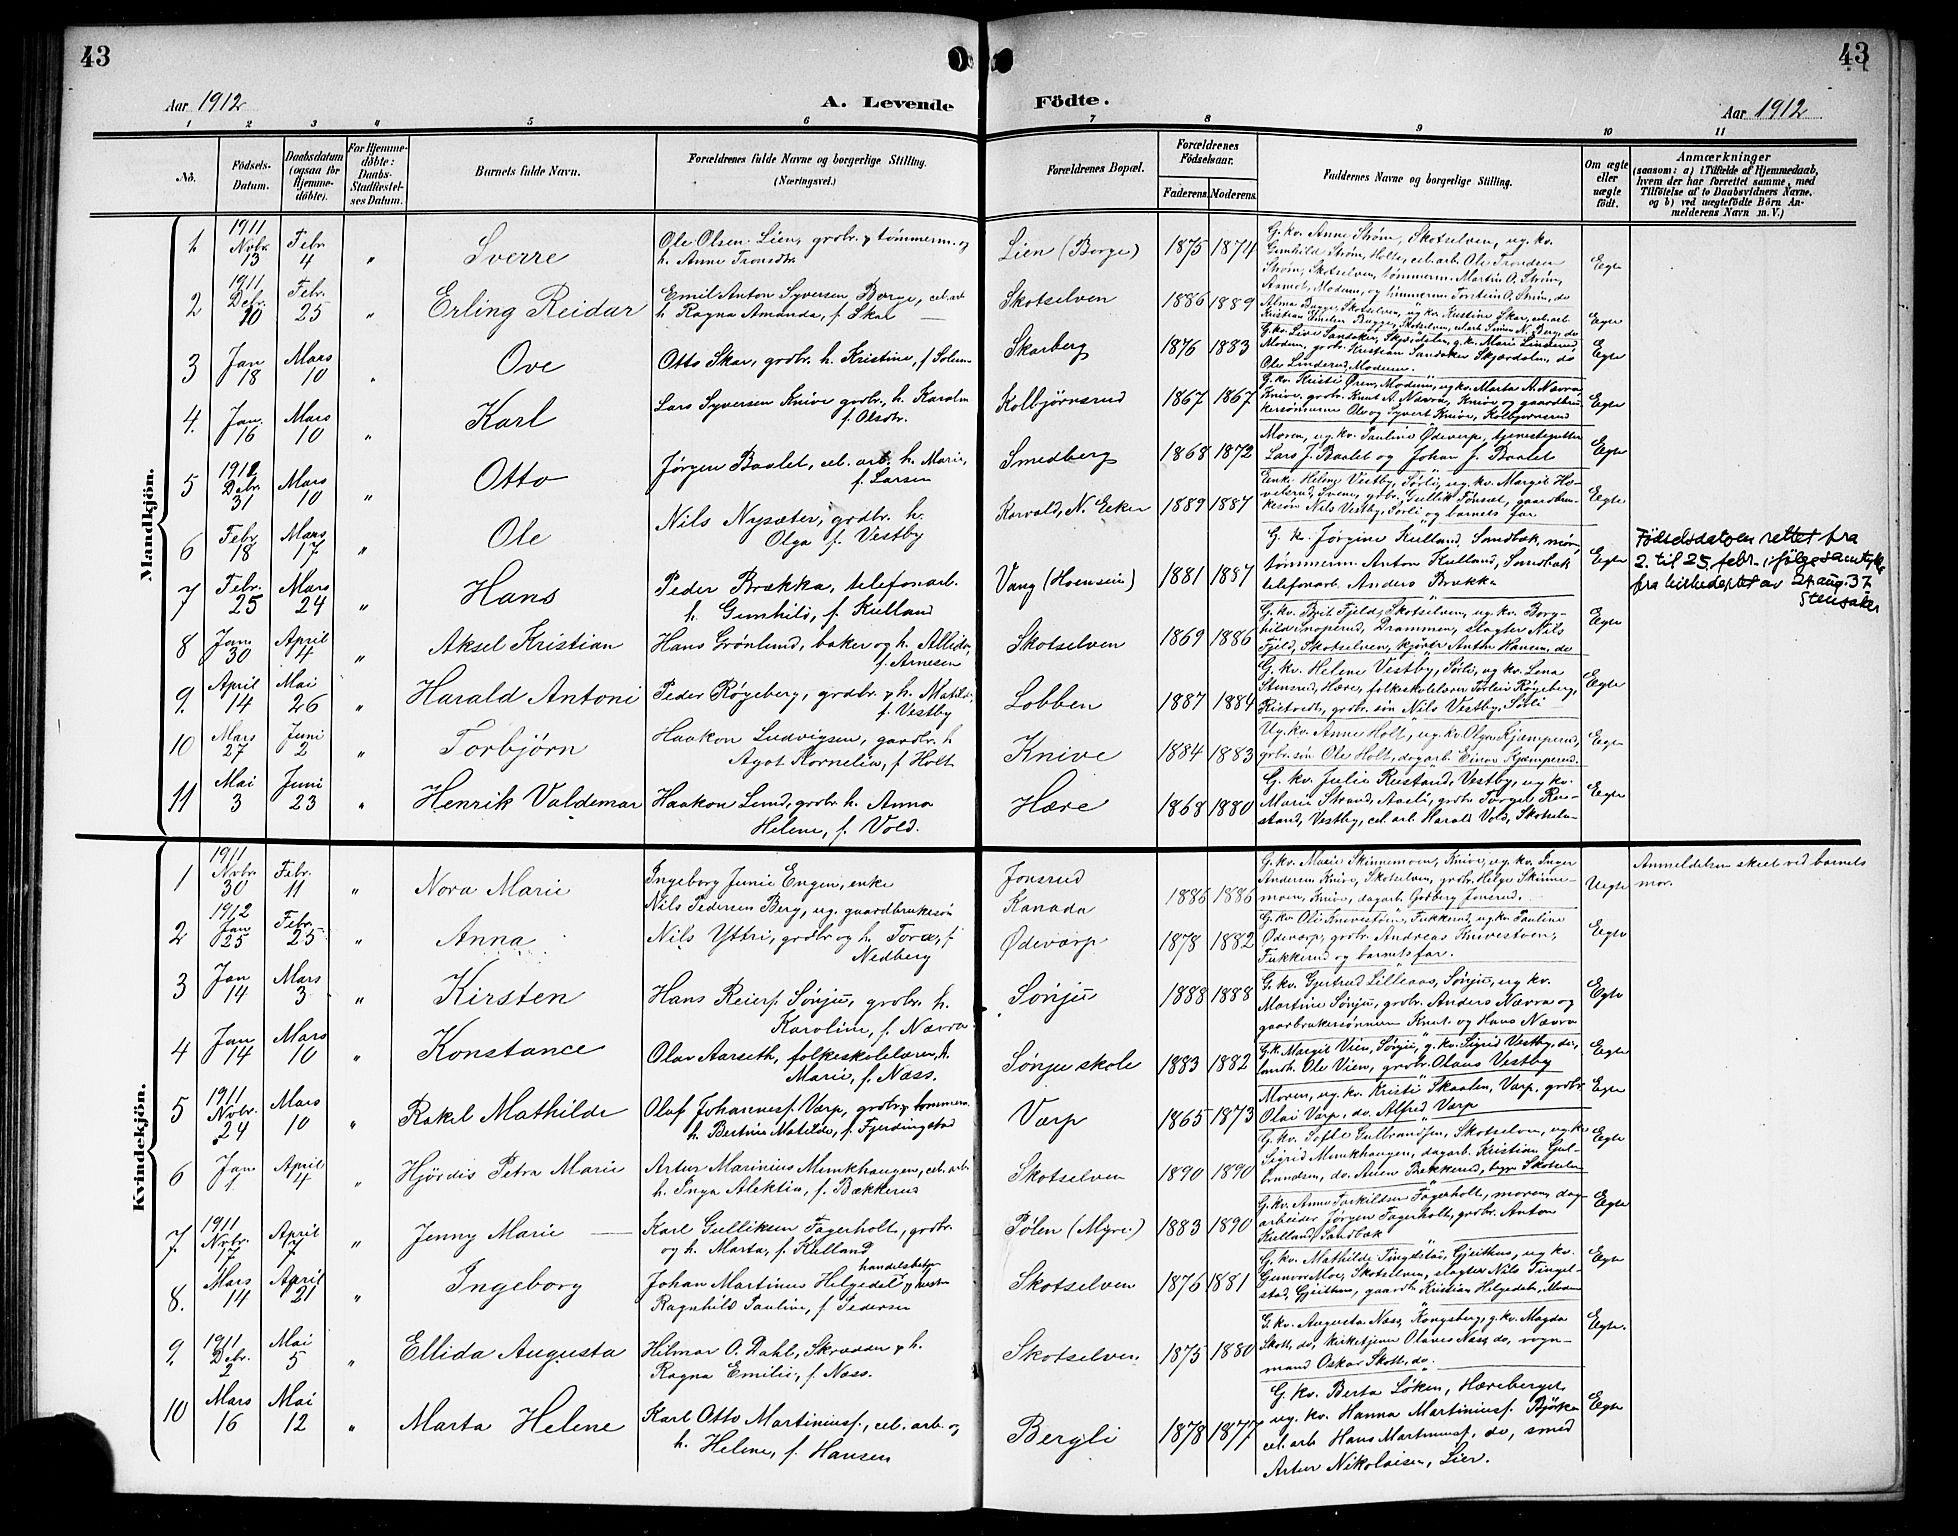 43
43
Aar 1912
A. Levende
Födte.
Aar 1912
1 2 3 4 5 6 7 8 9 10 11
No.
Födsels-
Datum.
Daabsdatum
(ogsaa for
Hjemme-
döbte).
For Hjemme-
döbte:
Daabs-
Stadfæstel-
ses Datum.
Barnets fulde Navn.
Forældrenes fulde Navne og borgerlige Stilling.
(Næringsvei.)
Forældrenes Bopæl.
Forældrenes
Födselsaar.
Faderens. Moderens.
Faddernes Navne og borgerlige Stilling.
Om ægte
eller
uægte
födt.
Anmærkninger
(saasom: a) i Tilfælde af Hjemmedaab,
hvem der har forrettet samme, med
Tilföielse af to Daabsvidners Navne,
og b) ved uægtefödte Börn An-
melderens Navn m. V.)
Mandkjön.
1 1911 Novbr. 13 Febr 4 " Sverre
Ole Olsen Lien, grdbr. & tømmerm. og
h. Anne Tronsdtr.
Lien (Borge) 1875 1874
G. kv. Anne Strøm, Skotselven, ug. kv.
Gunhild Strøm, Holte, cel. arb. Ole Tronsen
Strøm, Skotselven, tømmerm. Martin O. Strøm,
Aamot, Modum, og tømmerm. Torstein O. Strøm, do
Egte
2 1911 Debr. 10 Febr. 25 " Erling Reidar
Emil Anton Syversen Borge, cel. arb
h. Ragna Amanda, f. Skar
Skotselven 1886 1889
Alma Bugge, Skotselven, ug. kv. Kristine Skar, cel. arb
Kristian Emilen Bugge, Skotselven, cel. arb Simen N. Berg, do
Egte
3 Jan 18 Mars 10 " Ove
Otto Skar, grdbr. h. Kristine, f. Solum
Skarberg 1876 1883
G. kv. Live Sandaker, Skjærdalen, g. k. Marie Linderud,
Modum, grdbr. Kristian Sandaker Skjærdalen, do
Ole Linderud, Modum.
Egte
4. Jan. 16 Mars 10 " Karl
Lars Syversen Knive grdbr., h. Karolin
f. Olsdtr.
Kolbjørnsrud 1867 1867
G. kv. Kristi Øren, Modum, ug kv. Marta A. Nævra,
Knive, grdbr. Knut A. Nævra, Knive og gaardbru-
kersønnerne Ole og Syvert Knive, Kolbjørnsrud
Egte
5 1911 Debr. 31 Mars 10 " Otto
Jørgen Baalet, cel. arb. h. Marie,
f. Larsen
Smedberg 1868 1872
Moren, ug. kv. Pauline Ødevarp, tjenestegutten
Lars J. Baalet og Johan J. Baalet
Egte
6 Febr 18 Mars 17 " Ole
Nils Nysæter, grdbr. h.
Olga f. Vestby
Korvald, N. Eeker 1889 1887
Enke Helene Vestby, Sørli, ug. kv. Margit Ho-
velsrud, Svene, grbr. Gullik Tønset, gaardbru-
kersøn Nils Vestby, Sørli og barnets far
Egte
7 Febr 25 Mars 24 " Hans
Peder Brækka, telefonarb.
h. Gunhild, f. Kulland
Vang (Hoenseie) 1881 1887
G. k. Jørgine Kulland, Sandbak, mor,
tømmerm. Anton Kulland, Sandbak
telefonarb. Anders Brækka
Egte
Fødselsdatoen rettet fra
2. til 25. febr. ifølge samtykke
fra kirkedeptet av 24. aug. 37.
Stensaker
8 Jan 30 April 4 " Aksel Kristian
Hans Grønlund, baker og h. Allida,
f. Arnesen
Skotselven 1869 1886
G. kv. Brit Fjeld, Skotselven, ug. kv. Borg-
hild Snoperud, Drammen, slagter Nils
Fjeld, Skotselven, kjører Anton Hansen, do
Egte
9. April 14 Mai 26 " Harald Antoni
Peder Røgeberg, grdbr. & h. Matilde,
f. Vestby
Lobben 1887 1884
G. kv. Helene Vestby, Sørli, ug kv. Lena
Stensrud, Hære, folkeskolelærer Torleiv Røgeberg,
Kistvedt, grdbr. søn Nils Vestby, Sørli
Egte
10 Mars 27 Juni 2 " Torbjørn
Haakon Ludvigsen, gaardbr. h
Agot Kornelia, f. Holt
Knive 1884 1883
Ug. kv. Anne Holt, ug kv. Olga Kjæmperud,
grdbr. søn Ole Holt, dagarb. Einar Kjæmperud.
Egte
11 Mai 3 Juni 23 " Henrik Valdemar
Haakon Lund, grdbr. h. Anna
Helene, f. Vold.
Hære 1868 1880
G. kv. Julie Rustand, Vestby, ug kv.
Marie Strand, Aasli, grdbr Torgel Ru-
stand, Vestby, cel. arb. Harald Vold, Skotselv-
Egte
Kvindekjön.
1 1911 Novbr. 30 Febr. 11 " Nora Marie
Ingeborg Junie Engen, enke
Nils Pedersen Berg, ug. gaardbrukersøn
Jonsrud
Kanada 1885 1886
G. kv. Marie Skinnemoen, Knive, ug. kv. Inger
Andersen Knive, Skotselven, grdbr. Helge Skinne-
moen, Knive, dagarb. Gudberg Jonsrud.
Uegte
Anmeldelsen skeet ved barnets
mor.
2 1912 Jan 25 Febr. 25 " Anna
Nils Yttri, grdbr og h. Tora, f.
Nedberg
Ødevarp 1878 1882
G. kv Oli Knivestoen, Fukkerud, ug. kv. Pauline
Ødevarp, grdbr. Andreas Knivestoen,
Fukkerud og barnets far.
Egte
3 Jan 14 Mars 3 " Kirsten
Hans Reiersf. Sønju, grdbr. h.
Karoline, f. Nævra
Sønju 1888 1888
G. kv. Gjertrud Lilleaas, Sønju, ug kv.
Martine Sønju, grdbr. Anders Nævra og
gaarbrukersønnen Knut og Hans Nævra
Egte
4 Jan 14 Mars 10 " Konstance
Olav Aarseth, folkeskolelærer, h.
Marie, f. Næss.
Sønju skole 1883 1882
G. k. Margit Vien, Sønju, g. kv. Sigrid Vestby, do,
landh. Ole Vien, grdbr. Olaus Vestby
Egte
5 1911 Novbr. 24 Mars 10 " Rakel Mathilde
Olaf Johannesf. Varp, grdbr & tømmerm.
h. Bertine Matilde, f. Fjerdingstad
Varp 1865 1873
Moren, ug. kv. Kristi Skaalen, Varp, grdbr
Olai Varp, do. Alfred Varp
Egte
6 Jan 1 April 4 " Hjördis Petra Marie
Artur Marinius Munkhaugen, cel. arb
h. Inga Alektia, f. Bækkerud
Skotselven 1890 1890
G. kv. Sofie Gulbrandsen, Skotselven, ug. kv
Sigrid Munkhaugen, dagarb. Kristian Gul-
brandsen, do, Anen Bækkerud, bygn Skotselven
Egte
7. 1911 Novbr. 7 April 7 " Jenny Marie
Karl Gulliksen Fagerholt, grdbr.
og h. Marta, f. Kulland
Pølen (Myre) 1883 1890
G. kv. Anne Torkildsen Fagerholt, moren, dag-
arbeider Jørgen Fagerholt, grdbr. Anton
Kulland, Sandbak
Egte
8. Mars 14 April 21 " Ingeborg
handelsbetj.
Johan Martinus Helgedal & hustru
Ragnhild Pauline, f. Pedersen
Skotselven 1876 1881
G. kv. Mathilde Tingelstad, Gjeithus, ug kv.
Gunvor Moe, Skotselven, slagter Nils Tingel-
stad, Gjeithus, gaardbr. Kristian Helgedal, Modum
Egte
9. 1911 Debr. 2 Mai 5 " Ellida Augusta
Hilmar O. Dahl, Skrædder & h.
Ragna Emilie, f. Næss.
Skotselven 1875 1880
G. kv. Augusta Næss, Kongsberg, g. kv. Magda
Skott, do, kirketjener Olaves Næss, do, vogn-
mand Oskar Skott, do.
Egte.
10 Mars 16 Mai 12 " Marta Helene
Karl Otto Martiniusf., cel. arb. og
h. Helene, f. Hansen
Bergli 1878 1877
G. kv. Berta Løken, Hæreberget,
ug. kv. Hanna Martiniusf. Bjørka
cel. arb Hans Martiniusf., do, smed
Artur Nikolaisen, Lier.
Egte